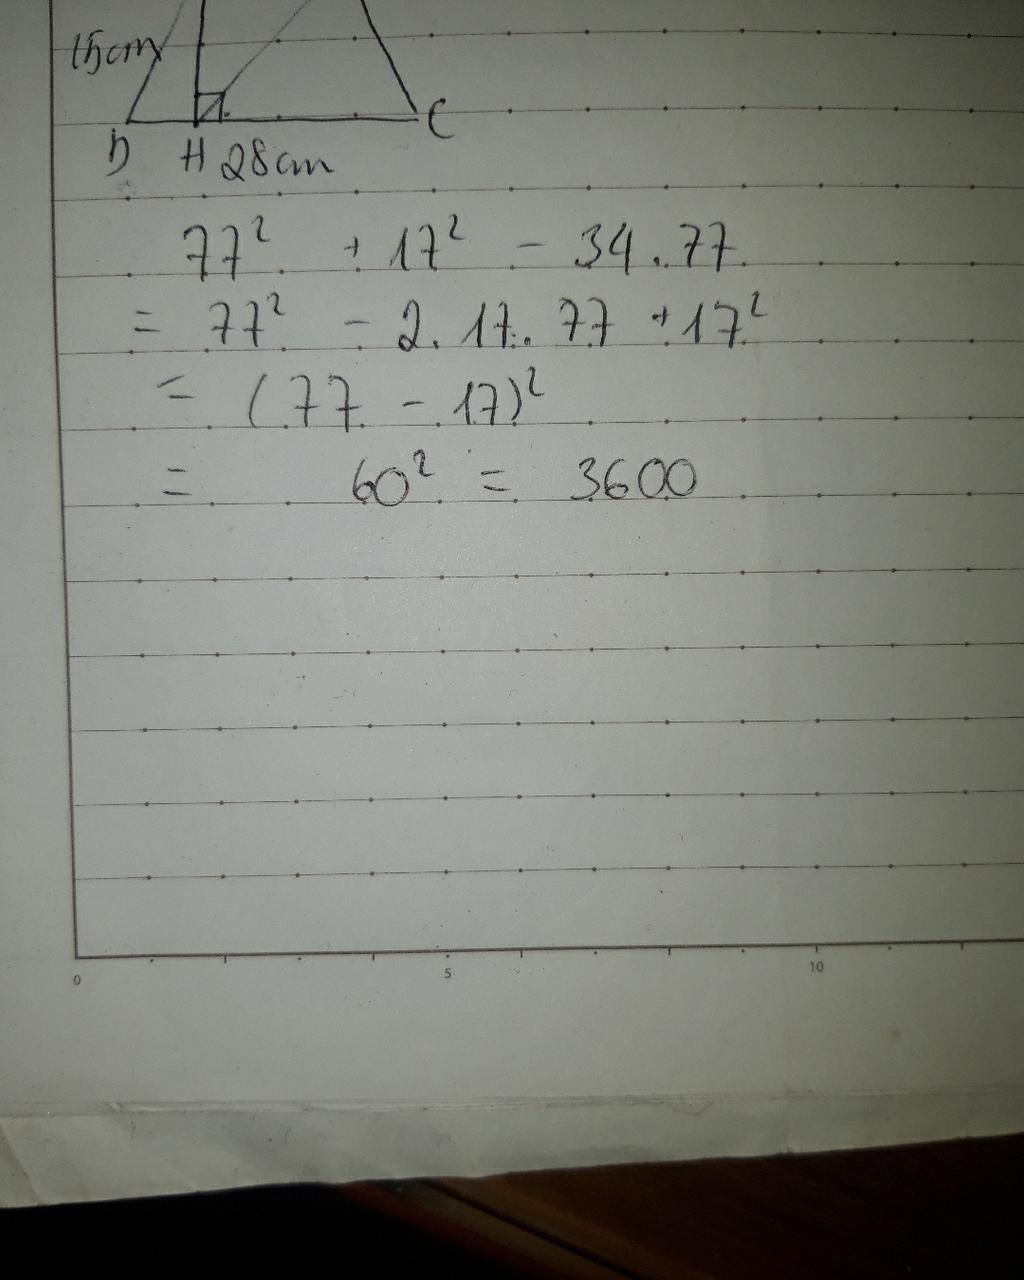 15cm
D H 28cm C
77² + 17² - 34.77
= 77² - 2.17.77 + 17²
= (77 - 17)²
= 60² = 3600
0 5 10